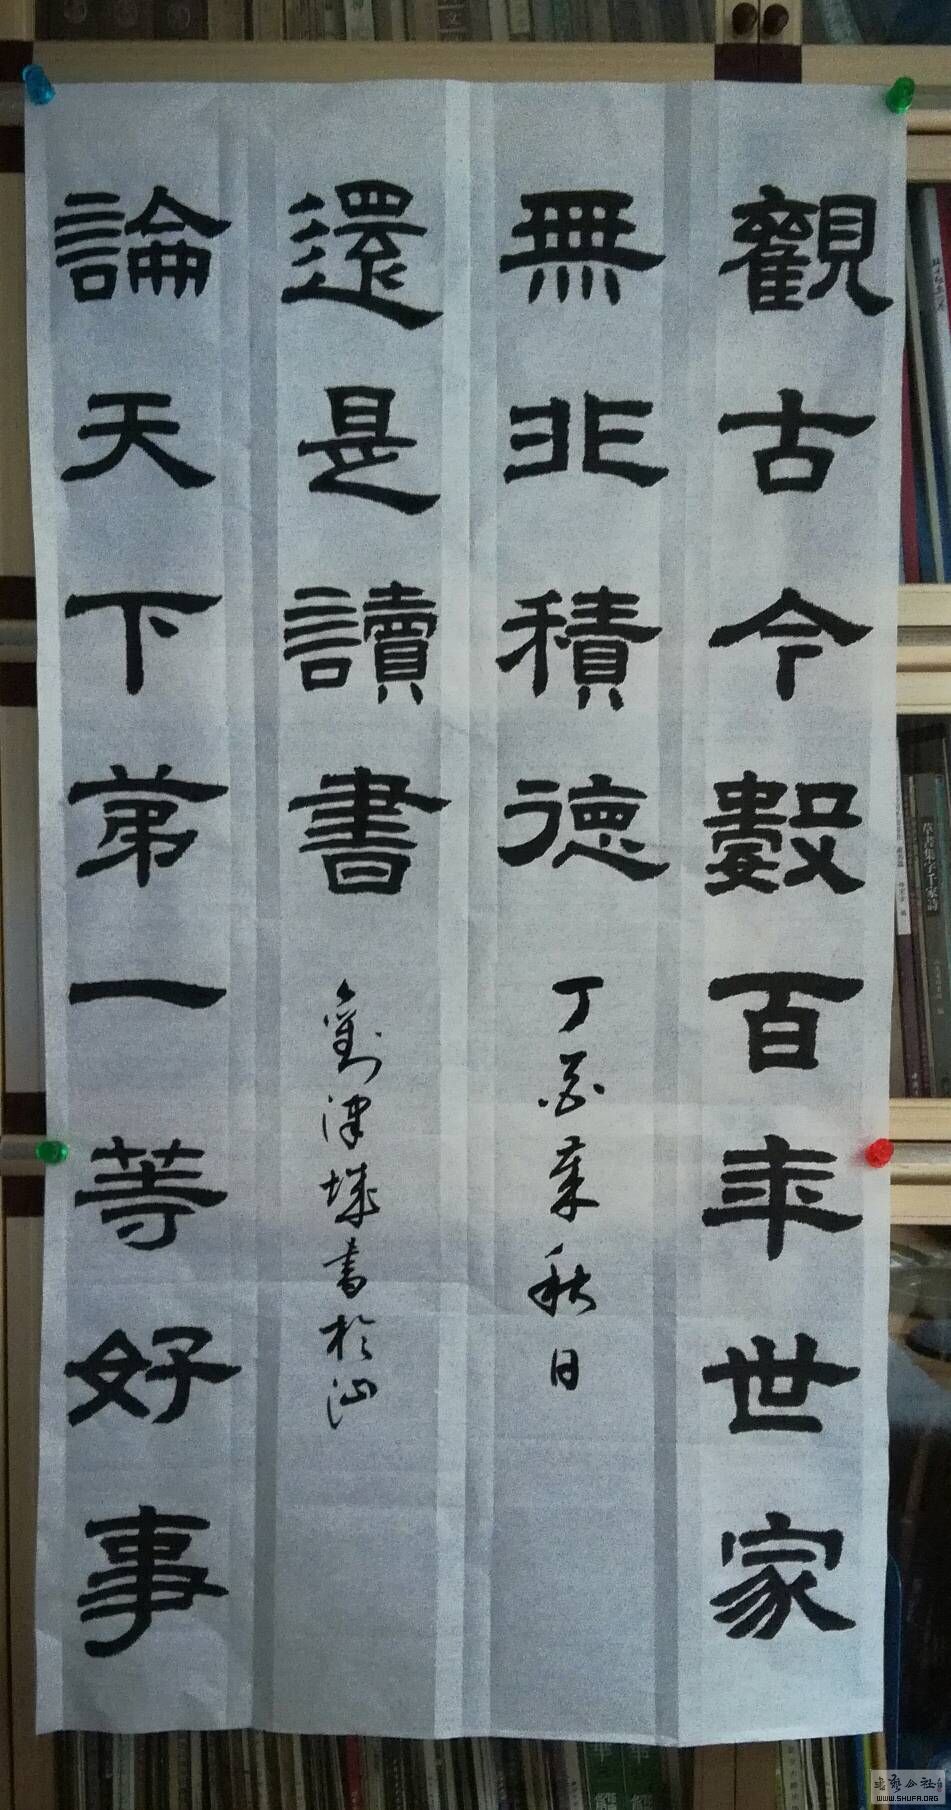 觀古今數百年世家
無非積德
丁酉年秋日
論天下弟一等好事
還是讀書
劉津城書於汕
草書集字千家詩
書藝公社
WWW.SHUFA.ORG